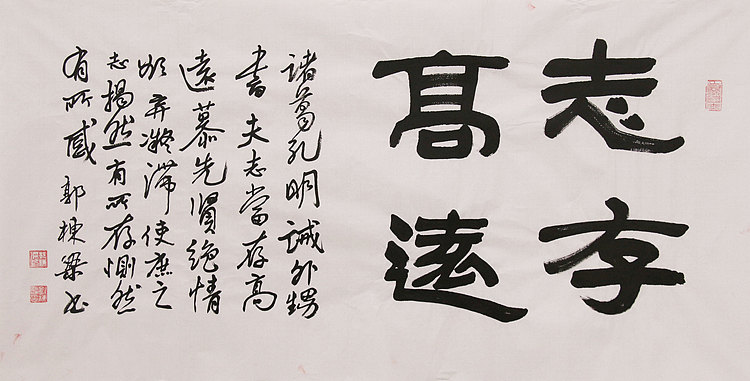 志存
髙遠
諸葛孔明誡外甥
書夫志當存高
遠慕先賢絕情
欲弃凝滯使庶之
志揭然有所存惻然
有所感 郭棟梁书